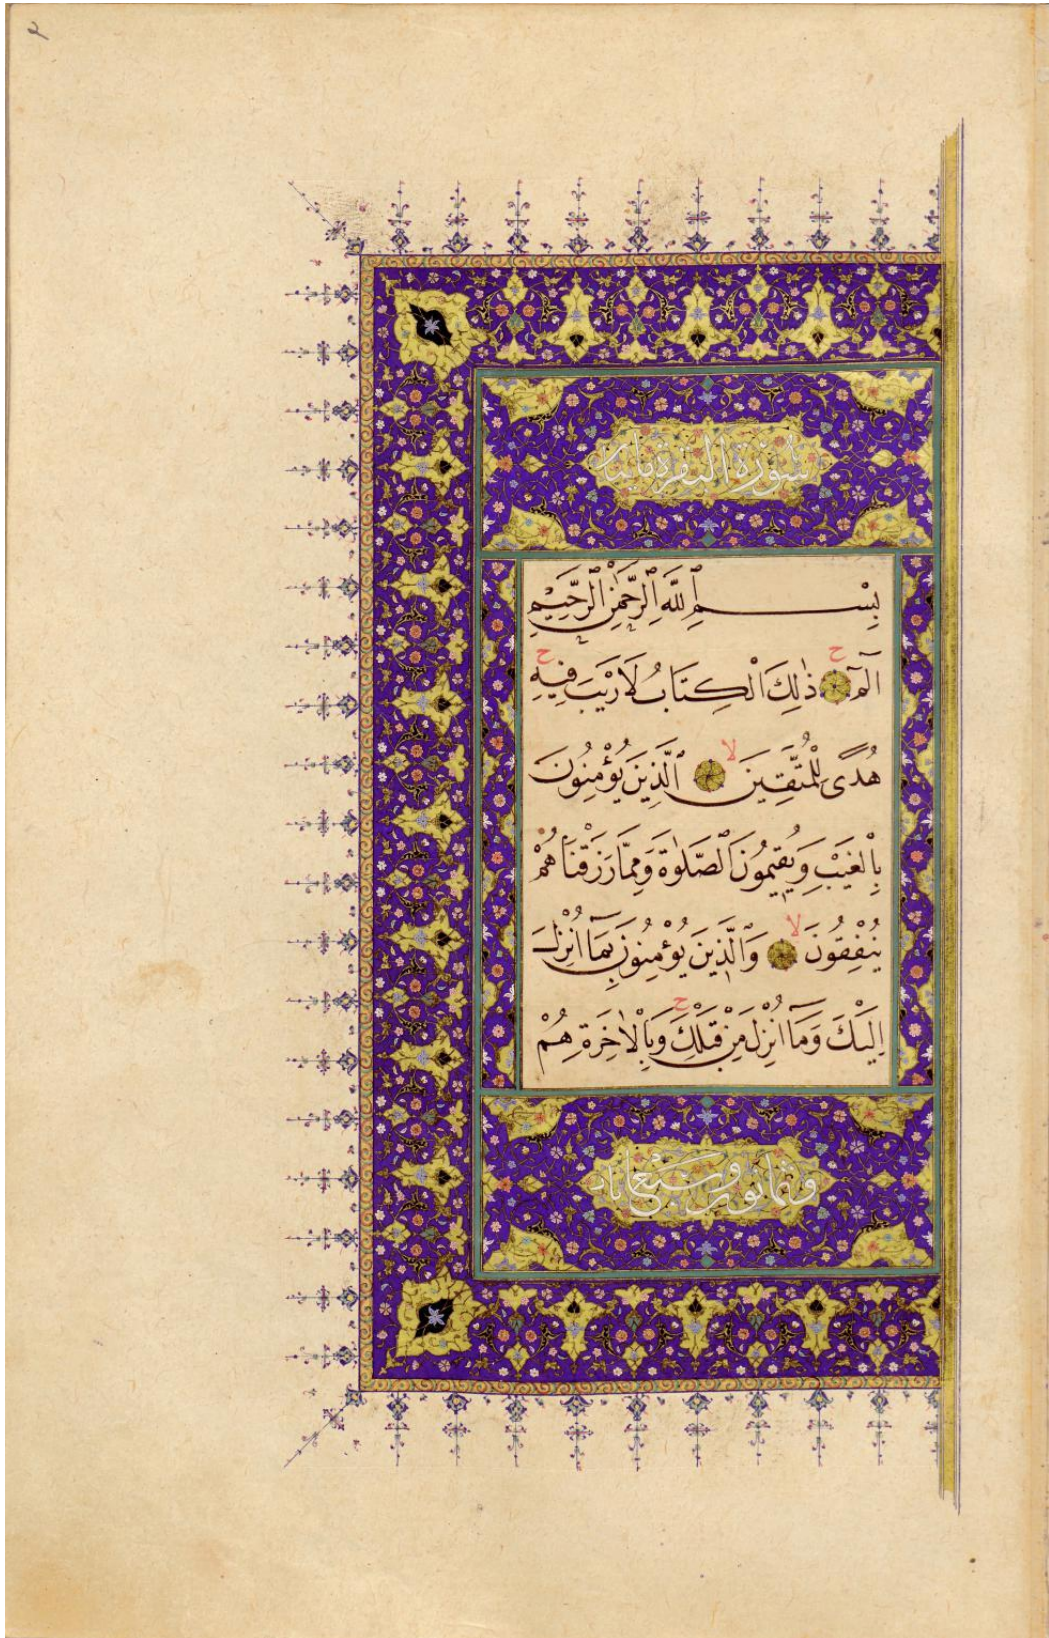 ٢
سورة البقرة مايتان
بِسْمِ ٱللَّهِ ٱلرَّحْمٰنِ ٱلرَّحِيمِ
ح ح
الٓمٓ ذٰلِكَ الْكِتَابُ لَا رَيْبَ فِيهِ
لا
هُدًى لِلْمُتَّقِينَ ٱلَّذِينَ يُؤْمِنُونَ
بِالْغَيْبِ وَيُقِيمُونَ ٱلصَّلٰوةَ وَمِمَّا رَزَقْنَاهُمْ
لا
يُنْفِقُونَ وَٱلَّذِينَ يُؤْمِنُونَ بِمَٓا اُنْزِلَ
ح
اِلَيْكَ وَمَٓا اُنْزِلَ مِنْ قَبْلِكَ وَبِالْاٰخِرَةِ هُمْ
وثمانون وسبع ايات